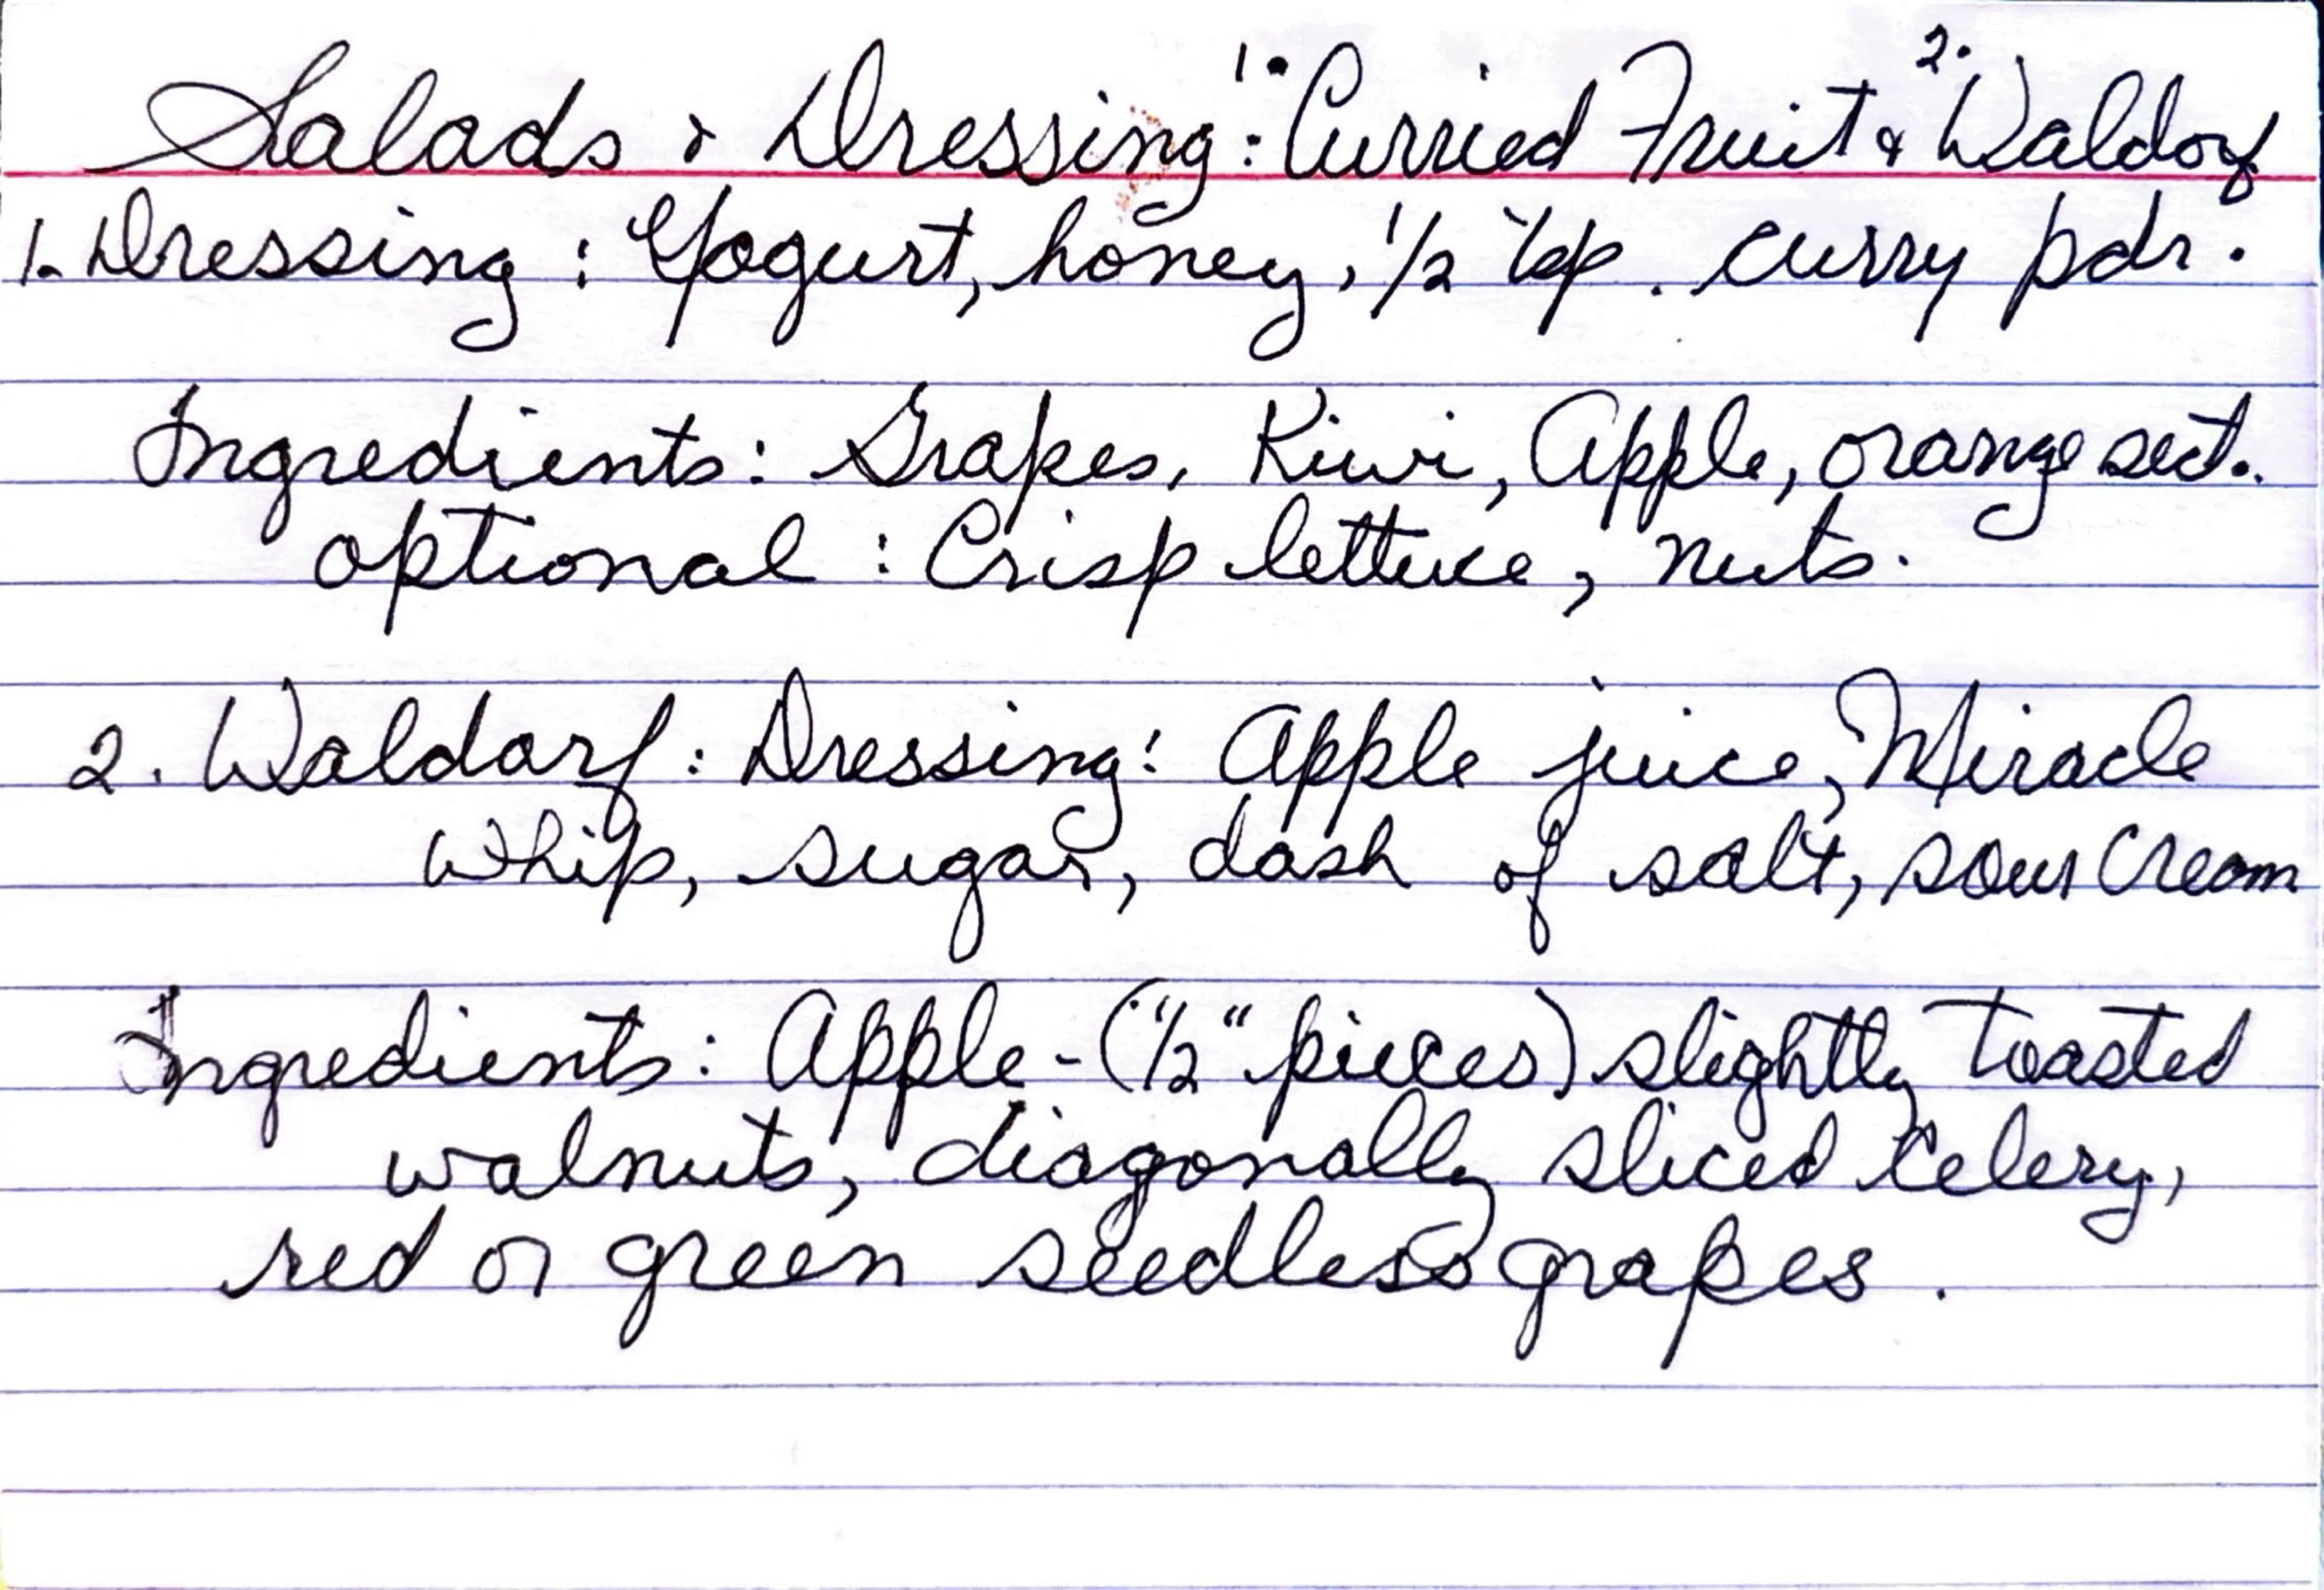 Salads & Dressing: 1. Curried Fruit & 2. Waldorf
1. Dressing: Yogurt, honey, 1/2 tsp. curry pdr.
Ingredients: Grapes, Kiwi, Apple, orange sect.
optional: Crisp lettuce, nuts.
2. Waldorf: Dressing: Apple juice, Miracle
Whip, sugar, dash of salt, sour Cream
Ingredients: Apple - (1/2" pieces) slightly toasted
walnuts, diagonally sliced celery,
red or green seedless grapes.